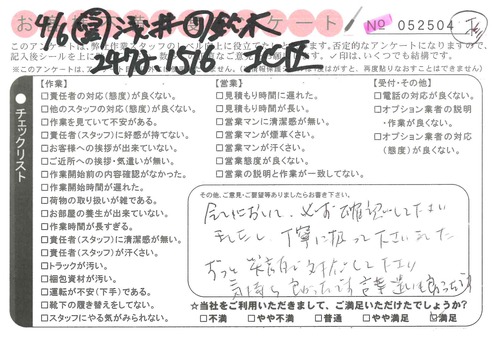 アンケート
No 052504
4/6
浅井
鈴木
2472-1576 北区
このアンケートは、弊社作業スタッフのレベル向上に役立て
記入後シールを上に
✓印は、いくつでも結構です。
チェックリスト
【作業】
□責任者の対応(態度)が良くない。
□他のスタッフの対応(態度)が良くない。
□作業を見ていて不安がある。
□責任者(スタッフ)に好感が持てない。
□お客様への挨拶が出来ていない。
□ご近所への挨拶・気遣いが無い。
□作業開始前の内容確認がなかった。
□作業開始時間が遅れた。
□荷物の取り扱いが雑である。
□お部屋の養生が出来ていない。
□作業時間が長すぎる。
□責任者(スタッフ)に清潔感が無い。
□責任者(スタッフ)が汗くさい。
□トラックが汚い。
□梱包資材が汚い。
□運転が不安(下手)である。
□靴下の履き替えをしてない。
□スタッフにやる気がみられない。
【営業】
□見積もり時間に遅れた。
□見積もり時間が長い。
□営業マンに清潔感が無い。
□営業マンが煙草くさい。
□営業マンが汗くさい。
□営業態度が良くない。
□営業の説明と作業が一致してない。
【受付・その他】
□電話の対応が良くない。
□オプション業者の説明
・作業が良くない。
□オプション業者の対応
(態度)が良くない。
その他、ご意見・ご要望等ありましたらお書き下さい。
全てにおいて、必ず確認して下さい
ましたし、丁寧に扱って下さいました
ずっと笑顔で対応して下さり
気持ち良かったです 言葉遣いも良かったです
☆当社をご利用いただきまして、ご満足いただけたでしょうか?
□不満 □やや不満 □普通 □やや満足 ☑満足